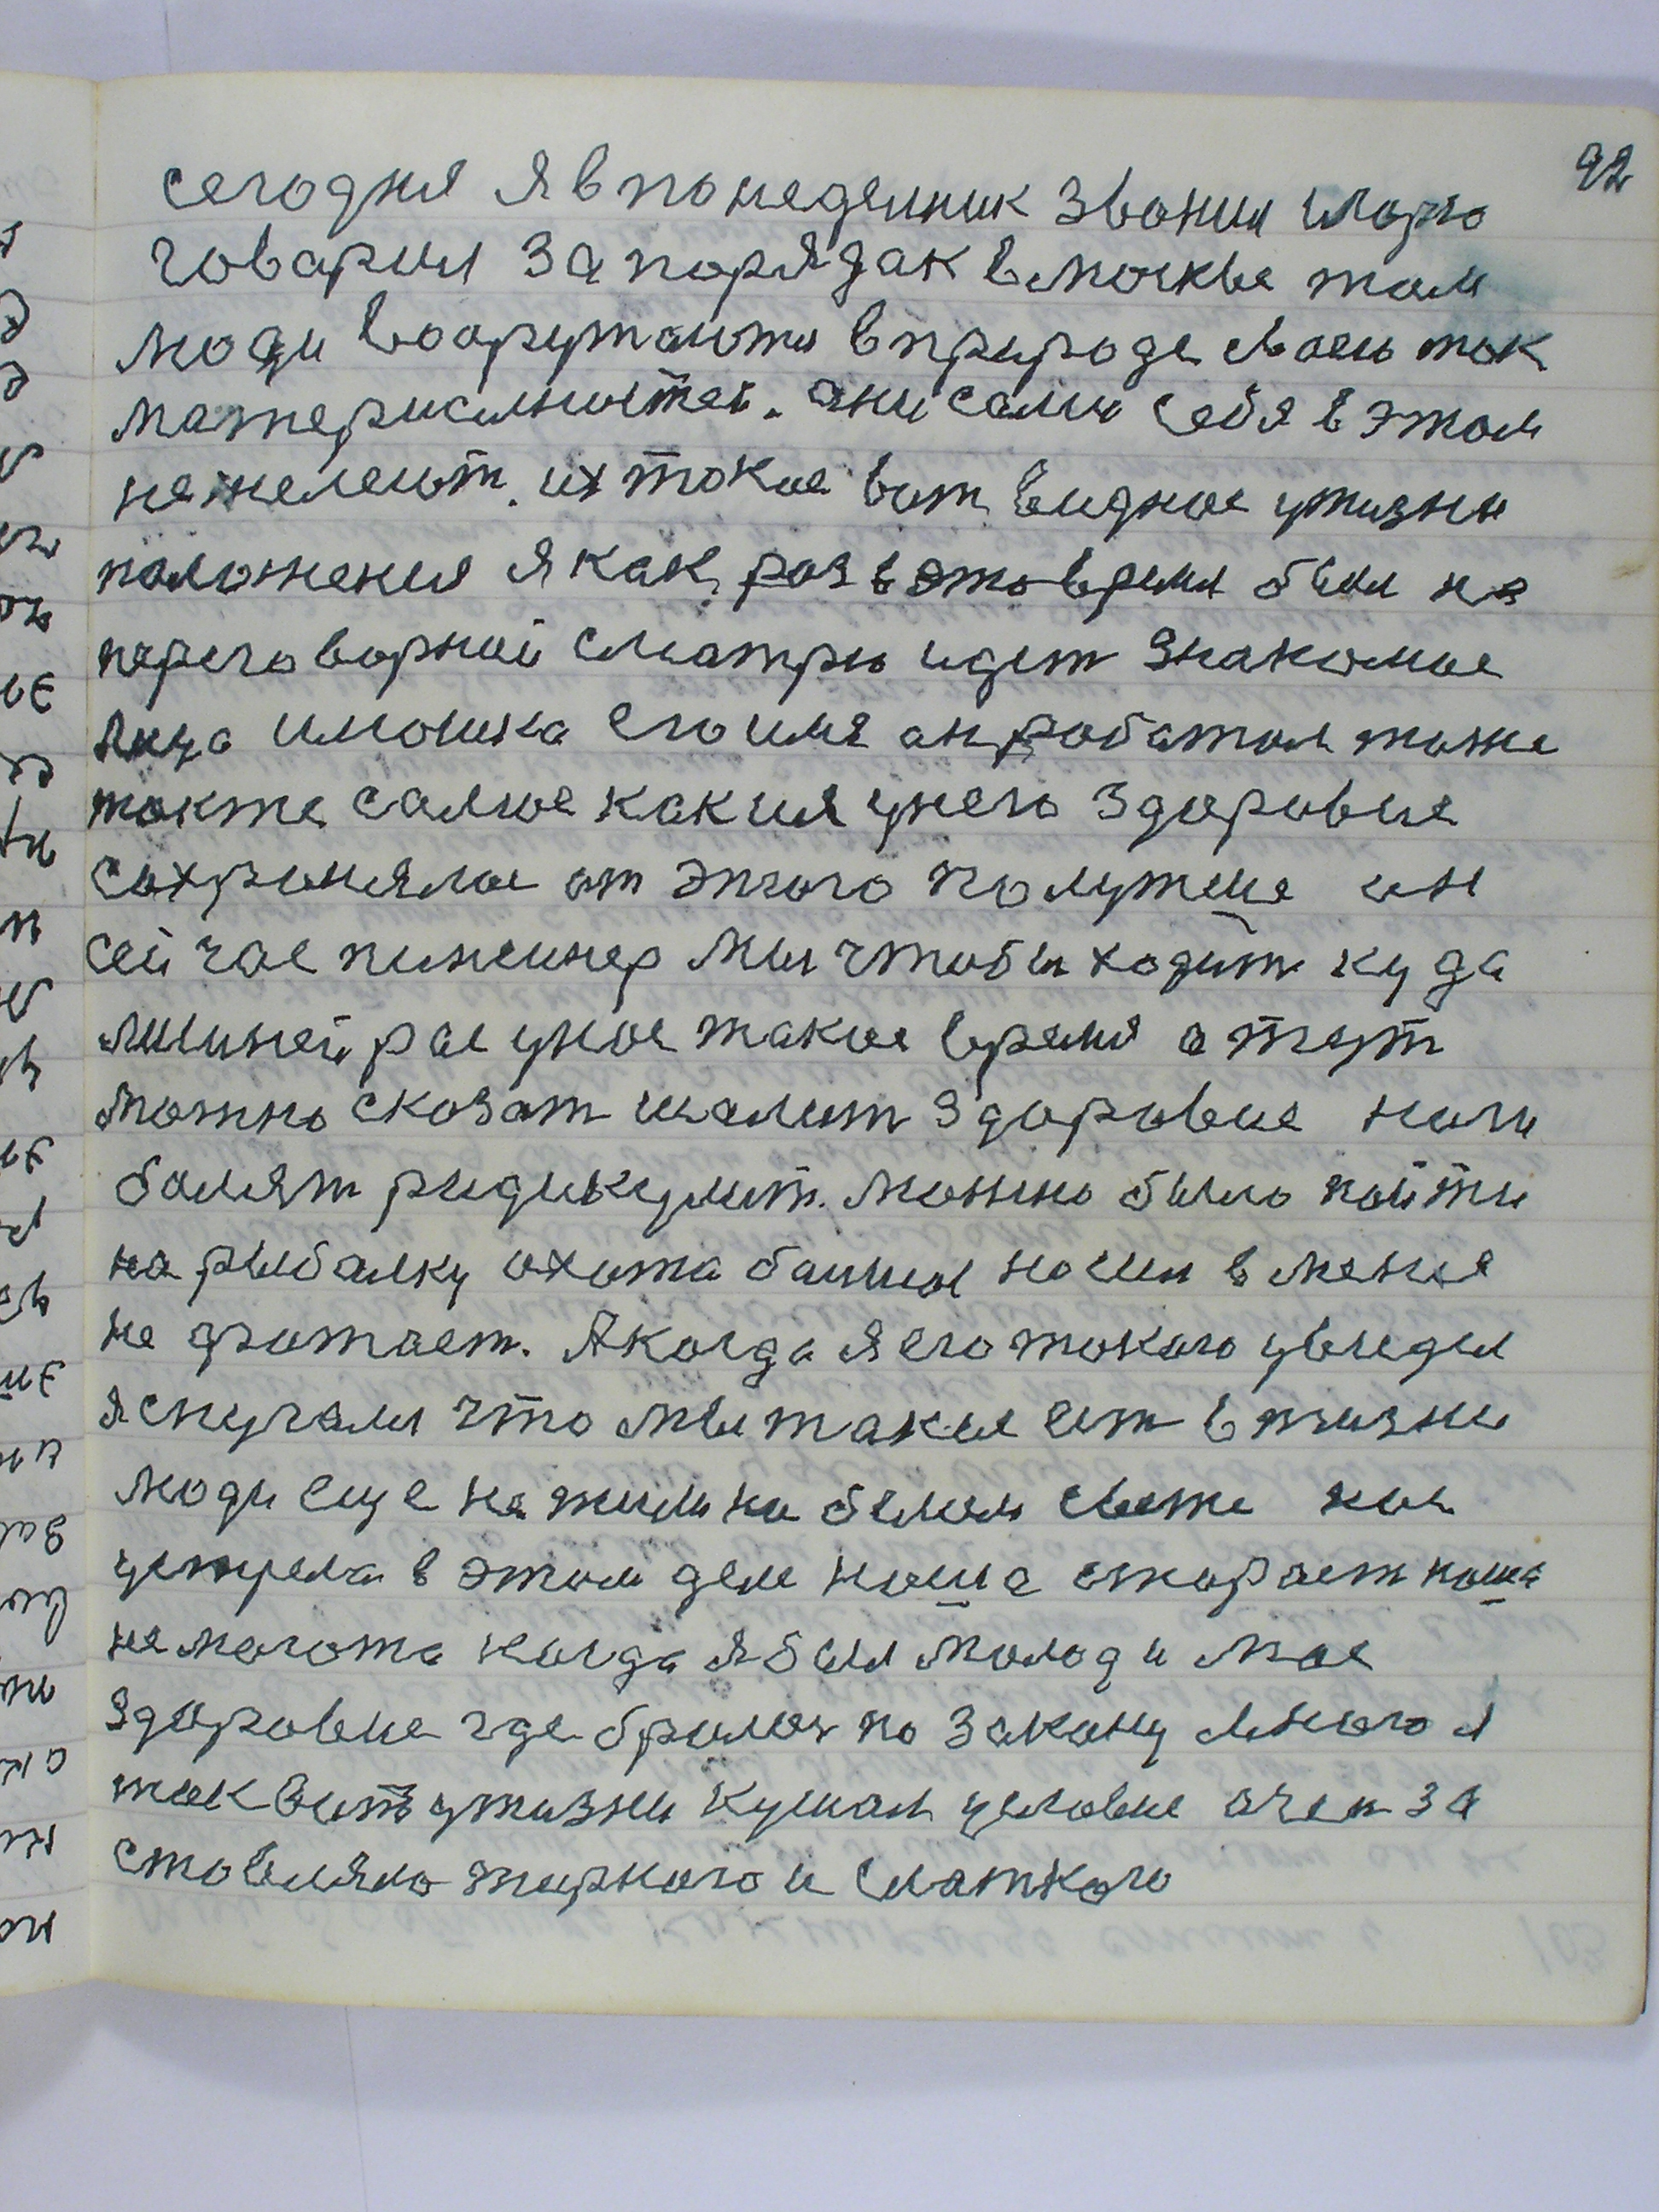 92
сегодня я в понеделник звонил
говарил за порядак в москве там
люди вооружаются в природе своей так
материалностей. они сами себя в этом
не желеют. их такое вот видное у жизни
положения я как раз в это время был на
переговорной сматрю идет знакомое
лица имошка его имя он работал тоже
также самое как и я у него здоровие
сохронялос от этого получше он
сейчас пинженер мы чтобы ходит куда
лишней рас у нас такое время а тут
можно сказат шалит здоровие ноги
болят ридикулит. можно было пойти
на рыбалку охота балшая но сил в меня
не хватает. А когда я его такого увидел
я спугалл что мы такие ест в жизни
люди еще не жили на белом свете нас
устрела в этом деле наша старает наша
не могота когда я был молод и мое
здоровие где бралос по закону много я
так вит у жизни кушал условие очен за
стовляло жирного и слаткого